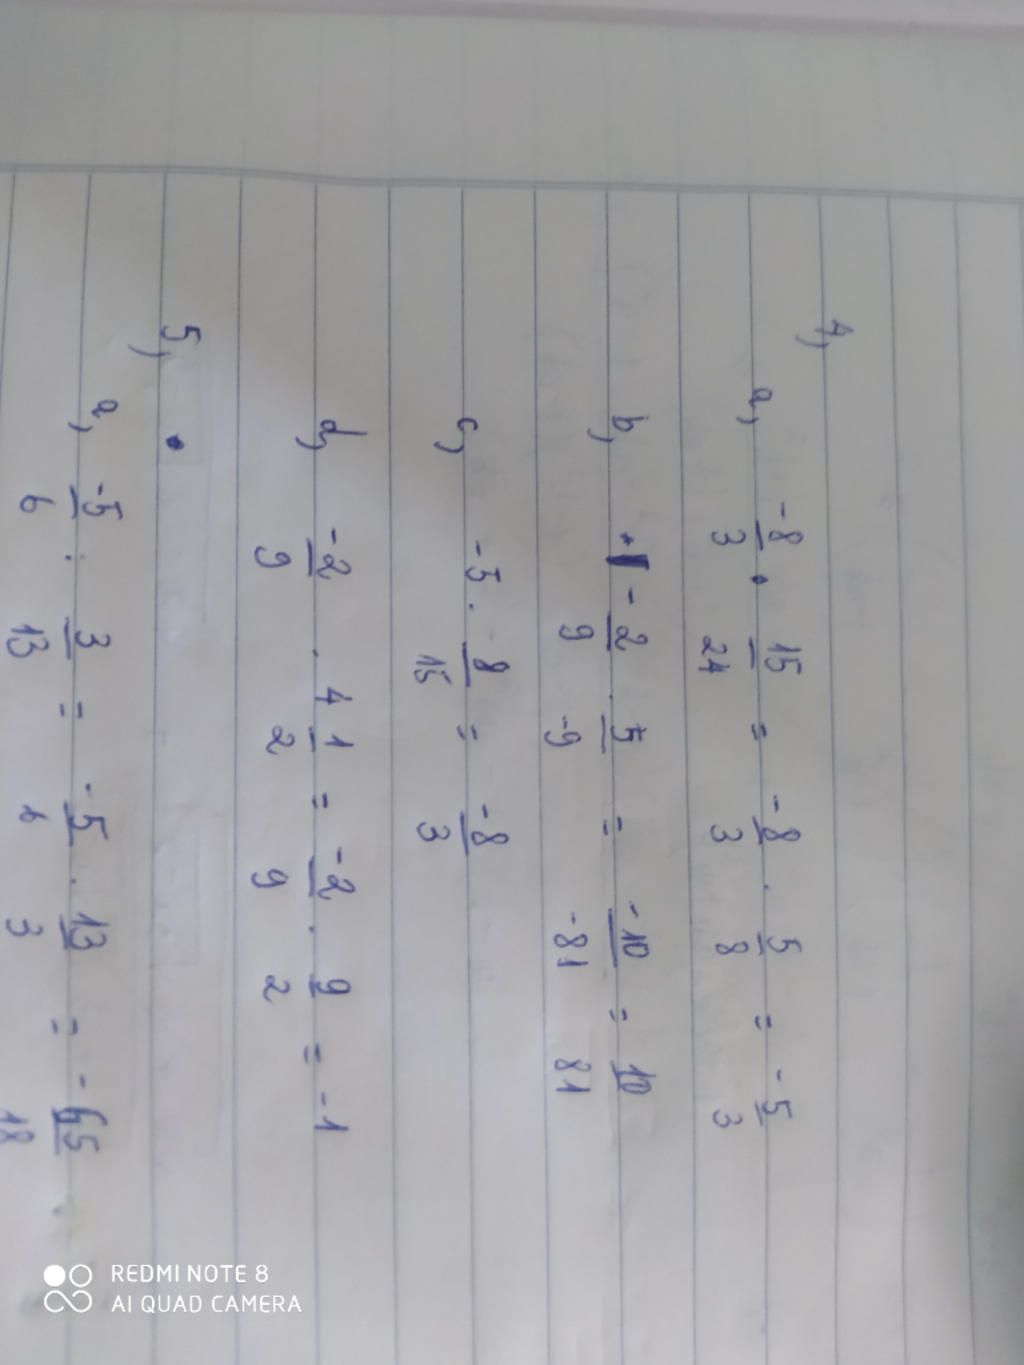 4,
a, -8/3 . 15/24 = -8/3 . 5/8 = -5/3
b, -2/9 . 5/-9 = -10/-81 = 10/81
c, -5 . 8/15 = -8/3
d, -2/9 . 4 1/2 = -2/9 . 9/2 = -1
5,
a, -5/6 : 3/13 = -5/6 . 13/3 = -65/18
REDMI NOTE 8
AI QUAD CAMERA